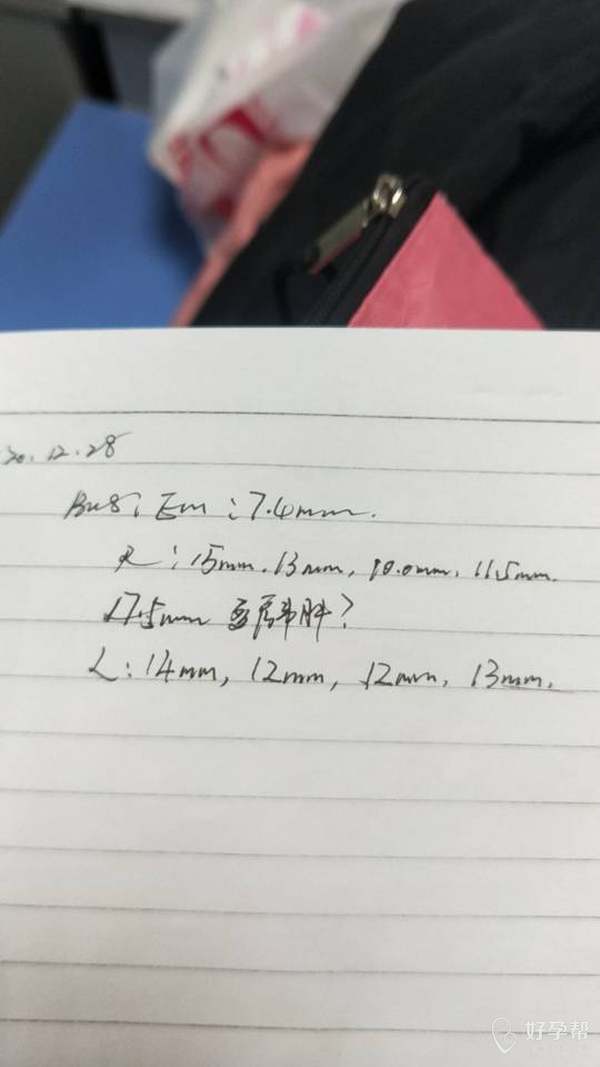 20.12.28
BUS: Em:7.4mm.
R:15mm.13mm,10.0mm,11.5mm.
17.5mm 畸胎?
L:14mm,12mm,12mm,13mm.
好孕帮